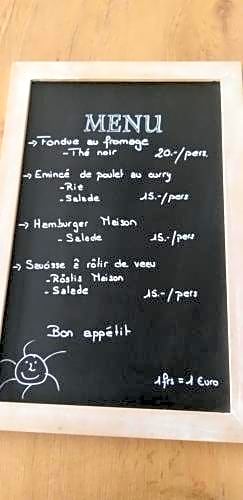 MENU
→ Fondue au fromage
- Thé noir 20.-/pers.
→ Emincé de poulet au curry
- Riz
- Salade 15.-/pers
→ Hamburger Maison
- Salade 15.-/pers
→ Saucisse à rôtir de veau
- Röstis Maison
- Salade 15.-/pers
Bon appétit
1frs = 1 Euro